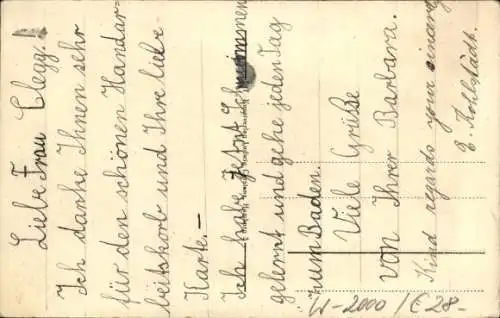 Liebe Frau Clegg!
Ich danke Ihnen sehr
für den schönen Handar-
beitskorb und Ihre liebe
Karte.-
Ich habe jetzt Schwimmen
gelernt und gehe jeden Tag
zum Baden.
Viele Grüße
von Ihrer Barbara.
Kind regards your
E. Kohlstädt.
W-2000/€28-